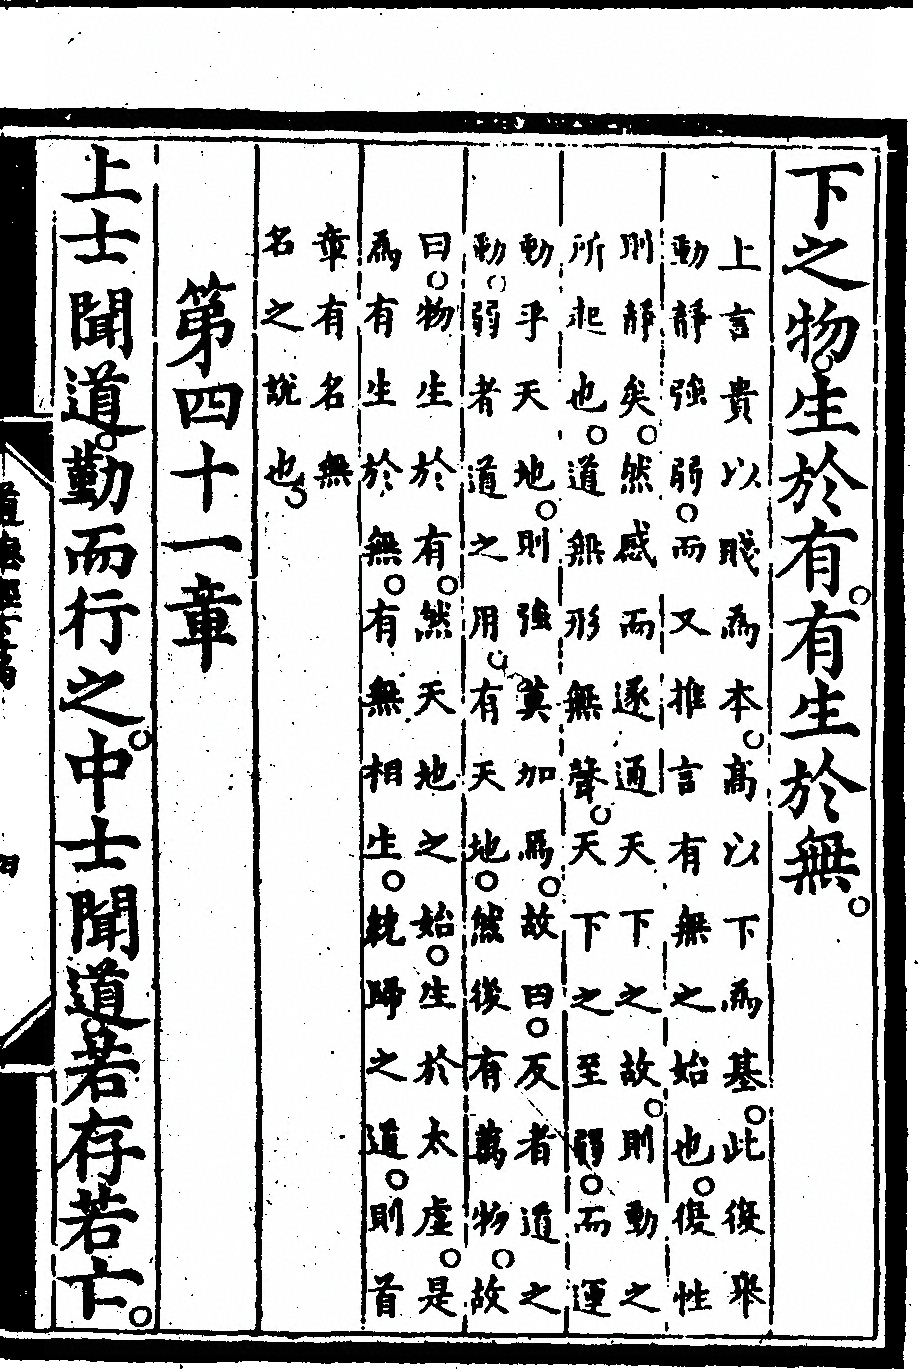 下之物。生於有。有生於無。
上言貴以賤為本。高以下為基。此復舉
動靜強弱。而又推言有無之始也。復性
則靜矣。然感而遂通天下之故。則動之
所起也。道無形無聲。天下之至弱。而運
動乎天地。則強莫加焉。故曰。反者道之
動。弱者道之用。有天地。然後有萬物。故
曰。物生於有。然天地之始。生於太虛。是
為有生於無。有無相生。統歸之道。則首
章有名無
名之說也。
第四十一章
上士聞道。勤而行之。中士聞道。若存若亡。